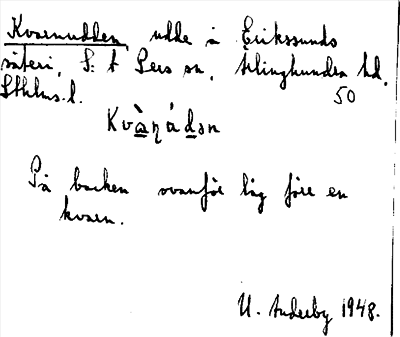 Kvarnudden udde å Erikssunds
säteri, S:t Pers sn, Ärlinghundra hd,
Sthlms. l. 50
På backen ovanför låg förr en
kvarn.
U. Anderby 1948.